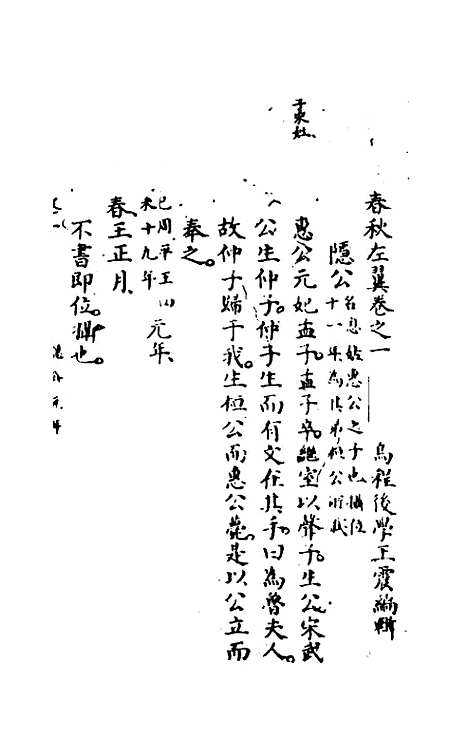 子宋姓
春秋左翼卷之一 烏程後學王震編輯
隱公名息姑惠公之子也攝位
十一年為其弟桓公所弒
惠公元妃孟子。孟子卒。繼室以聲子。生公。宋武
公生仲子。仲子生而有文在其手。曰為魯夫人。
故仲子歸于我。生桓公而惠公薨。是以公立而
奉之。
己周平王四
未十九年元年、
春王正月、
不書即位。攝也。